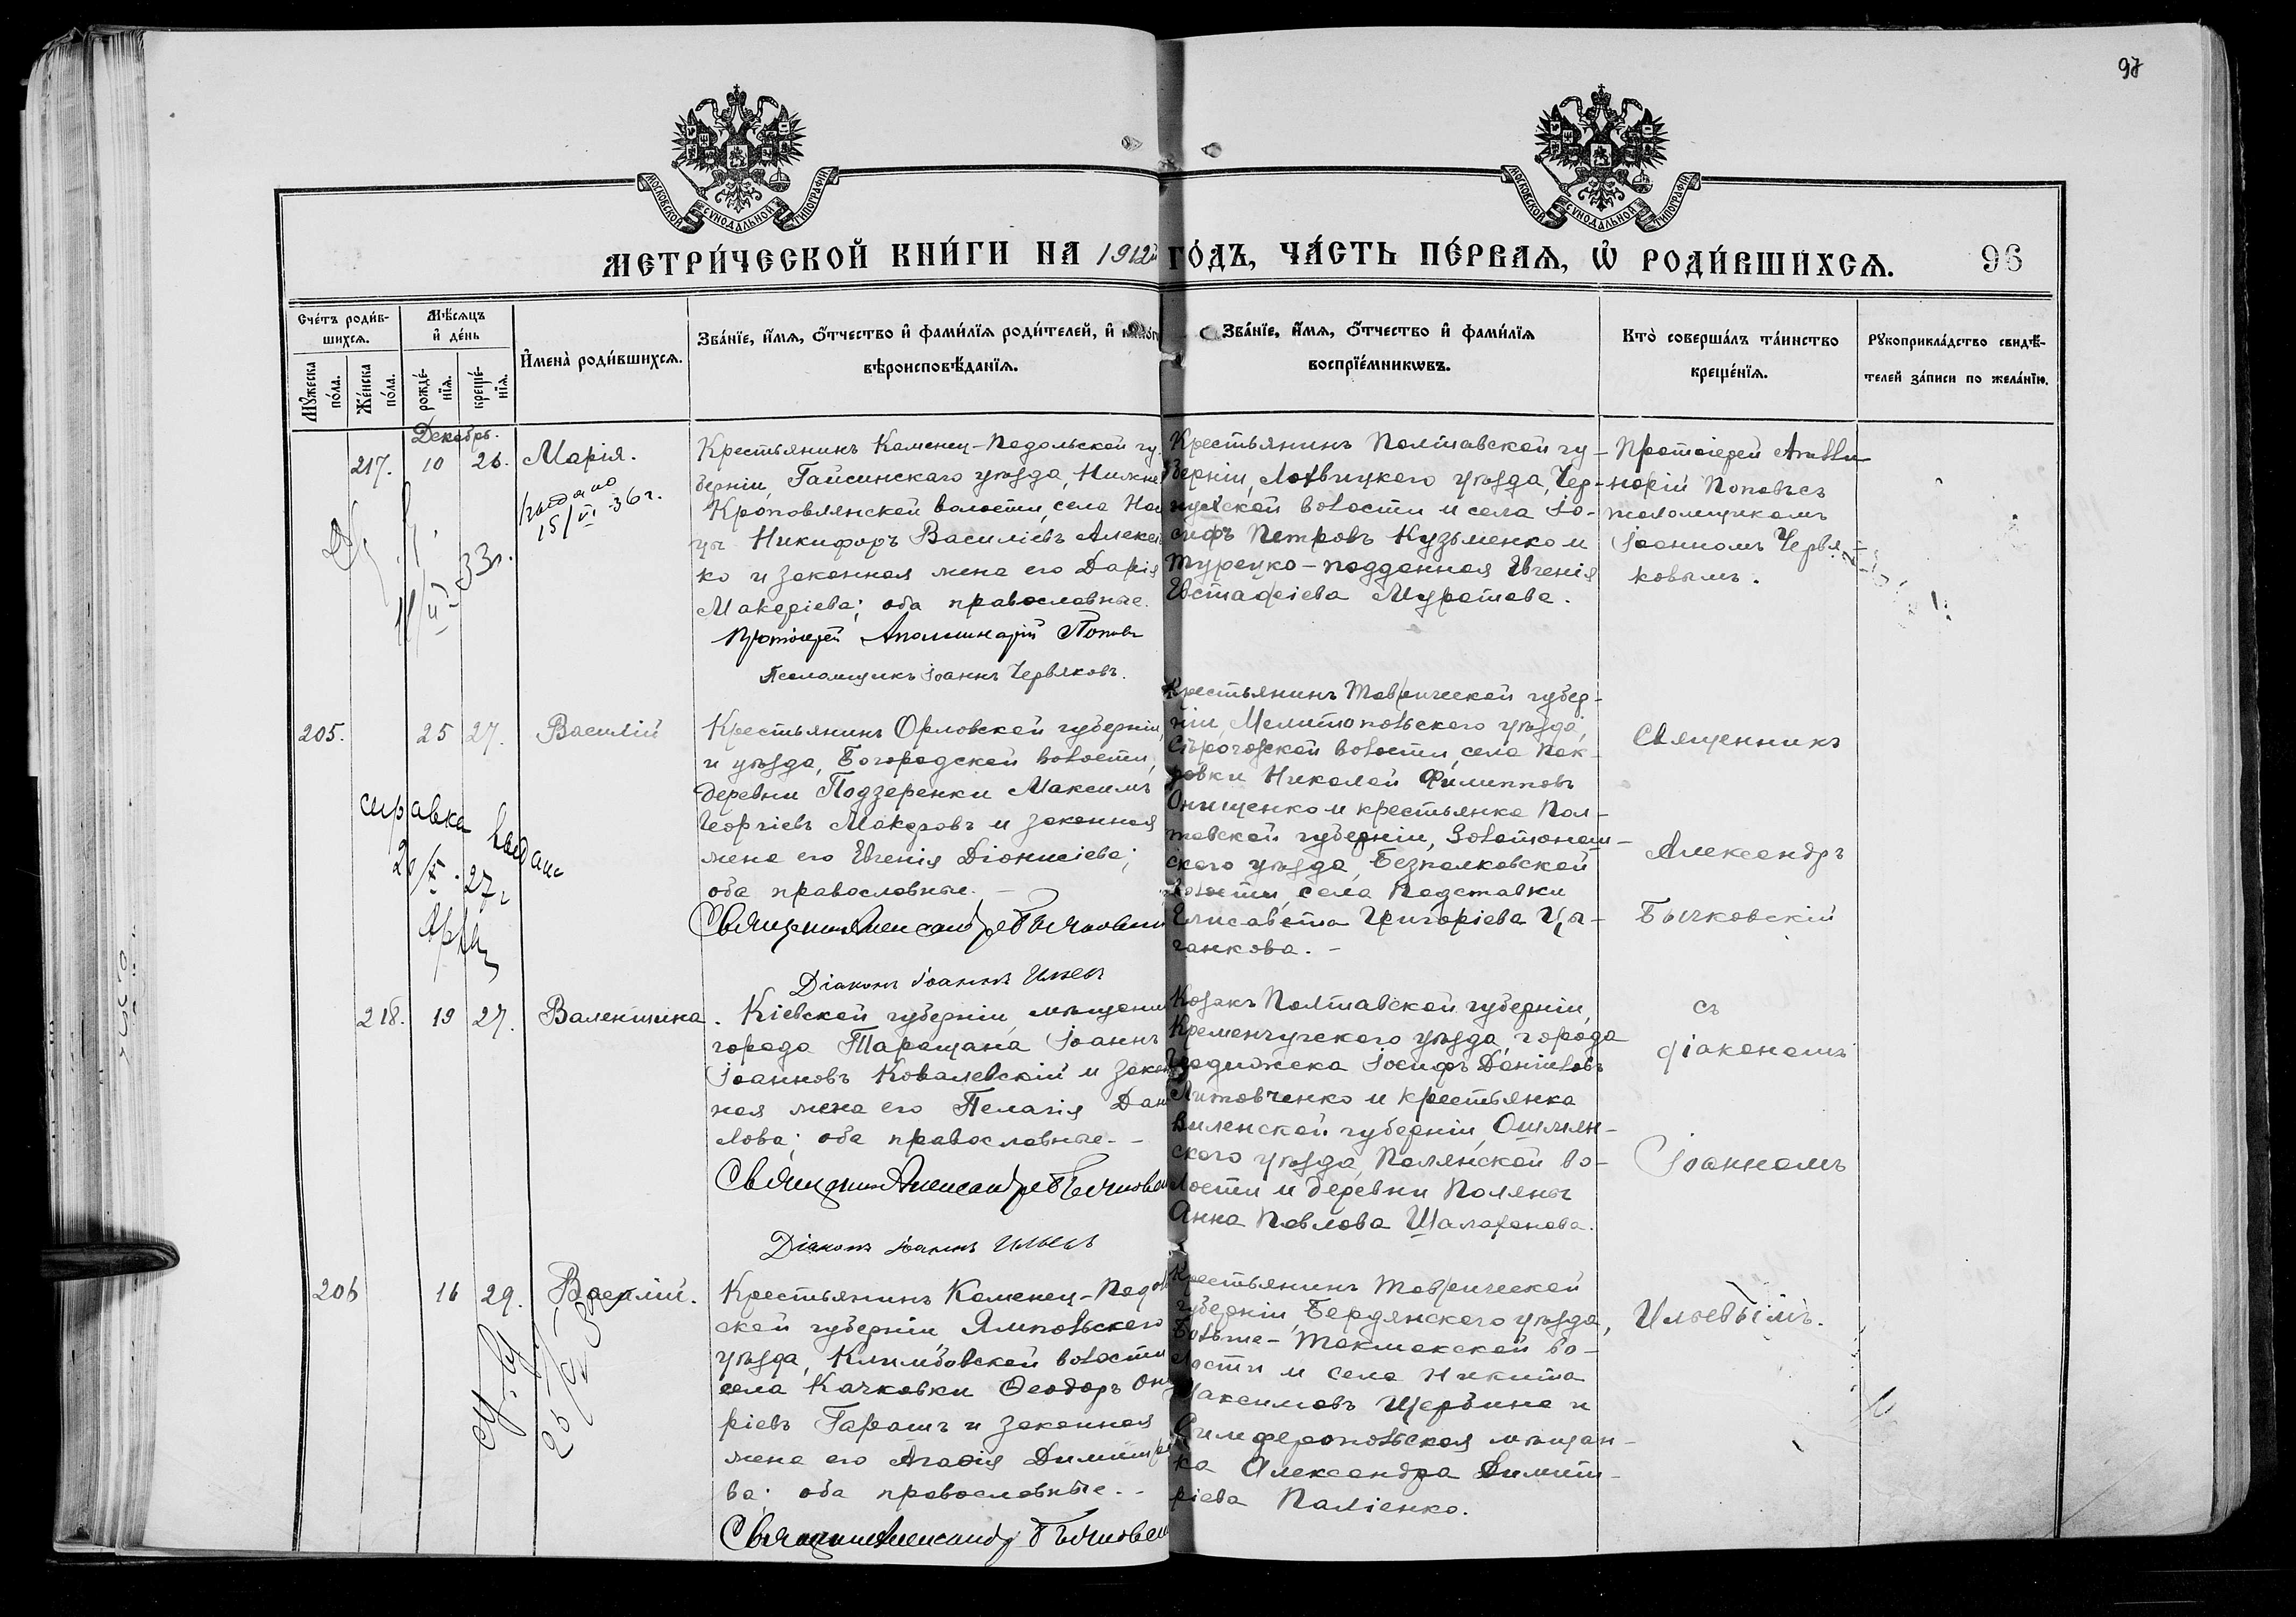 97
МОСКОВСКОЙ СѴНОДАЛЬНОЙ ТИПОГРАФІИ
МОСКОВСКОЙ СѴНОДАЛЬНОЙ ТИПОГРАФІИ
МЕТРИ́ЧЕСКОЙ КНИ́ГИ НА 1912й ГО́ДЪ, ЧА́СТЬ ПЕ́РВАЯ, Ѡ҆ РОДИ́ВШИХСЯ. 96
Сче́тъ роди́вшихся.
Мꙋ́жеска по́ла.
Же́нска по́ла.
Мѣ́сяцъ и҆ де́нь
рожде́нїя.
креще́нїя.
И҆мена̀ роди́вшихся.
Зва́нїе, и҆́мя, ѻ҆́тчество и҆ фами́лїя роди́телей, и҆
вѣроисповѣ́данїя.
Зва́нїе, и҆́мя, ѻ҆́тчество и҆ фами́лїя
воспрїе́мникѡвъ.
Кто̀ соверша́лъ та́инство
креще́нїя.
Рꙋкоприкла́дство свидѣ́-
телей за́писи по жела́нїю.
Декабрь.
217. 10 26. Марія.
15/VI 36 г.
33г.
Крестьянинъ Каменец-Подольской гу-
берніи, Гайсинскаго уѣзда, Нижне
Кроповлянской волости, села
Никифоръ Василіевъ Алексе
ко и законная жена его Дарія
Макаріева; оба православные.
Протоіерей Аполлинарій Поповъ
Псаломщикъ Іоаннъ Червяковъ.
Крестьянинъ Полтавской гу-
берніи, Лохвицкаго уѣзда, Чер-
нухской волости и села Іо-
сифъ Петровъ Кузьменко и
турецко-подданная Евгенія
Евстафіева Муратова.
Протоіерей Аполли-
нарій Поповъ съ
псаломщикомъ
Іоанномъ Червя-
ковымъ.
205. 25 27. Василій
справка выдана
20/X. 27 г
Крестьянинъ Орловской губерніи,
и уѣзда, Богородской волости,
деревни Подзеренки Максимъ
Георгіевъ Макаровъ и законная
жена его Евгенія Діонисіева;
оба православные. -
Священникъ Александръ Бычковскій
Діаконъ Іоаннъ Ильевъ
Крестьянинъ Таврической губер-
ніи, Мелитопольскаго уѣзда,
Сѣрогозской волости, села Пок-
ровки Николай Филипповъ
Онищенко и крестьянка Пол-
тавской губерніи, Золотонош-
скаго уѣзда, Безпалковской
волости, села Подставки
Елисавета Григоріева Цы-
ганкова. -
Священникъ
Александръ
Бычковскій
съ
діакономъ
Іоанномъ
Ильевымъ.
218. 19 27. Валентина.
Кіевской губерніи, мѣщанин
города Таращана Іоаннъ
Іоанновъ Ковалевскій и закон
ная жена его Пелагія Дани
лова; оба православные. -
Священникъ Александръ Бычковскій
Діаконъ Іоаннъ Ильевъ
Козакъ Полтавской губерніи,
Кременчугскаго уѣзда, города
Градижска Іосифъ Даніиловъ
Литовченко и крестьянка
Виленской губерніи, Ошмян-
скаго уѣзда, Полянской во-
лости и деревни Поляны
Анна Павлова Шалафанова.
206 16 29. Василій.
Крестьянинъ Каменец-Подоль
ской губерніи, Ямпольскаго
уѣзда, Климбовской волости
села Качковки Ѳеодоръ Ону
ріевъ Гарашъ и законная
жена его Агаѳія Димитріе
ва; оба православные. -
Священникъ Александръ Бычковскій
Крестьянинъ Таврической
губерніи, Бердянскаго уѣзда,
Больше-Токмакской во-
лости и села Никита
Максимовъ Щербина и
Симферопольская мѣщан-
ка Александра Димит-
ріева Паліенко.